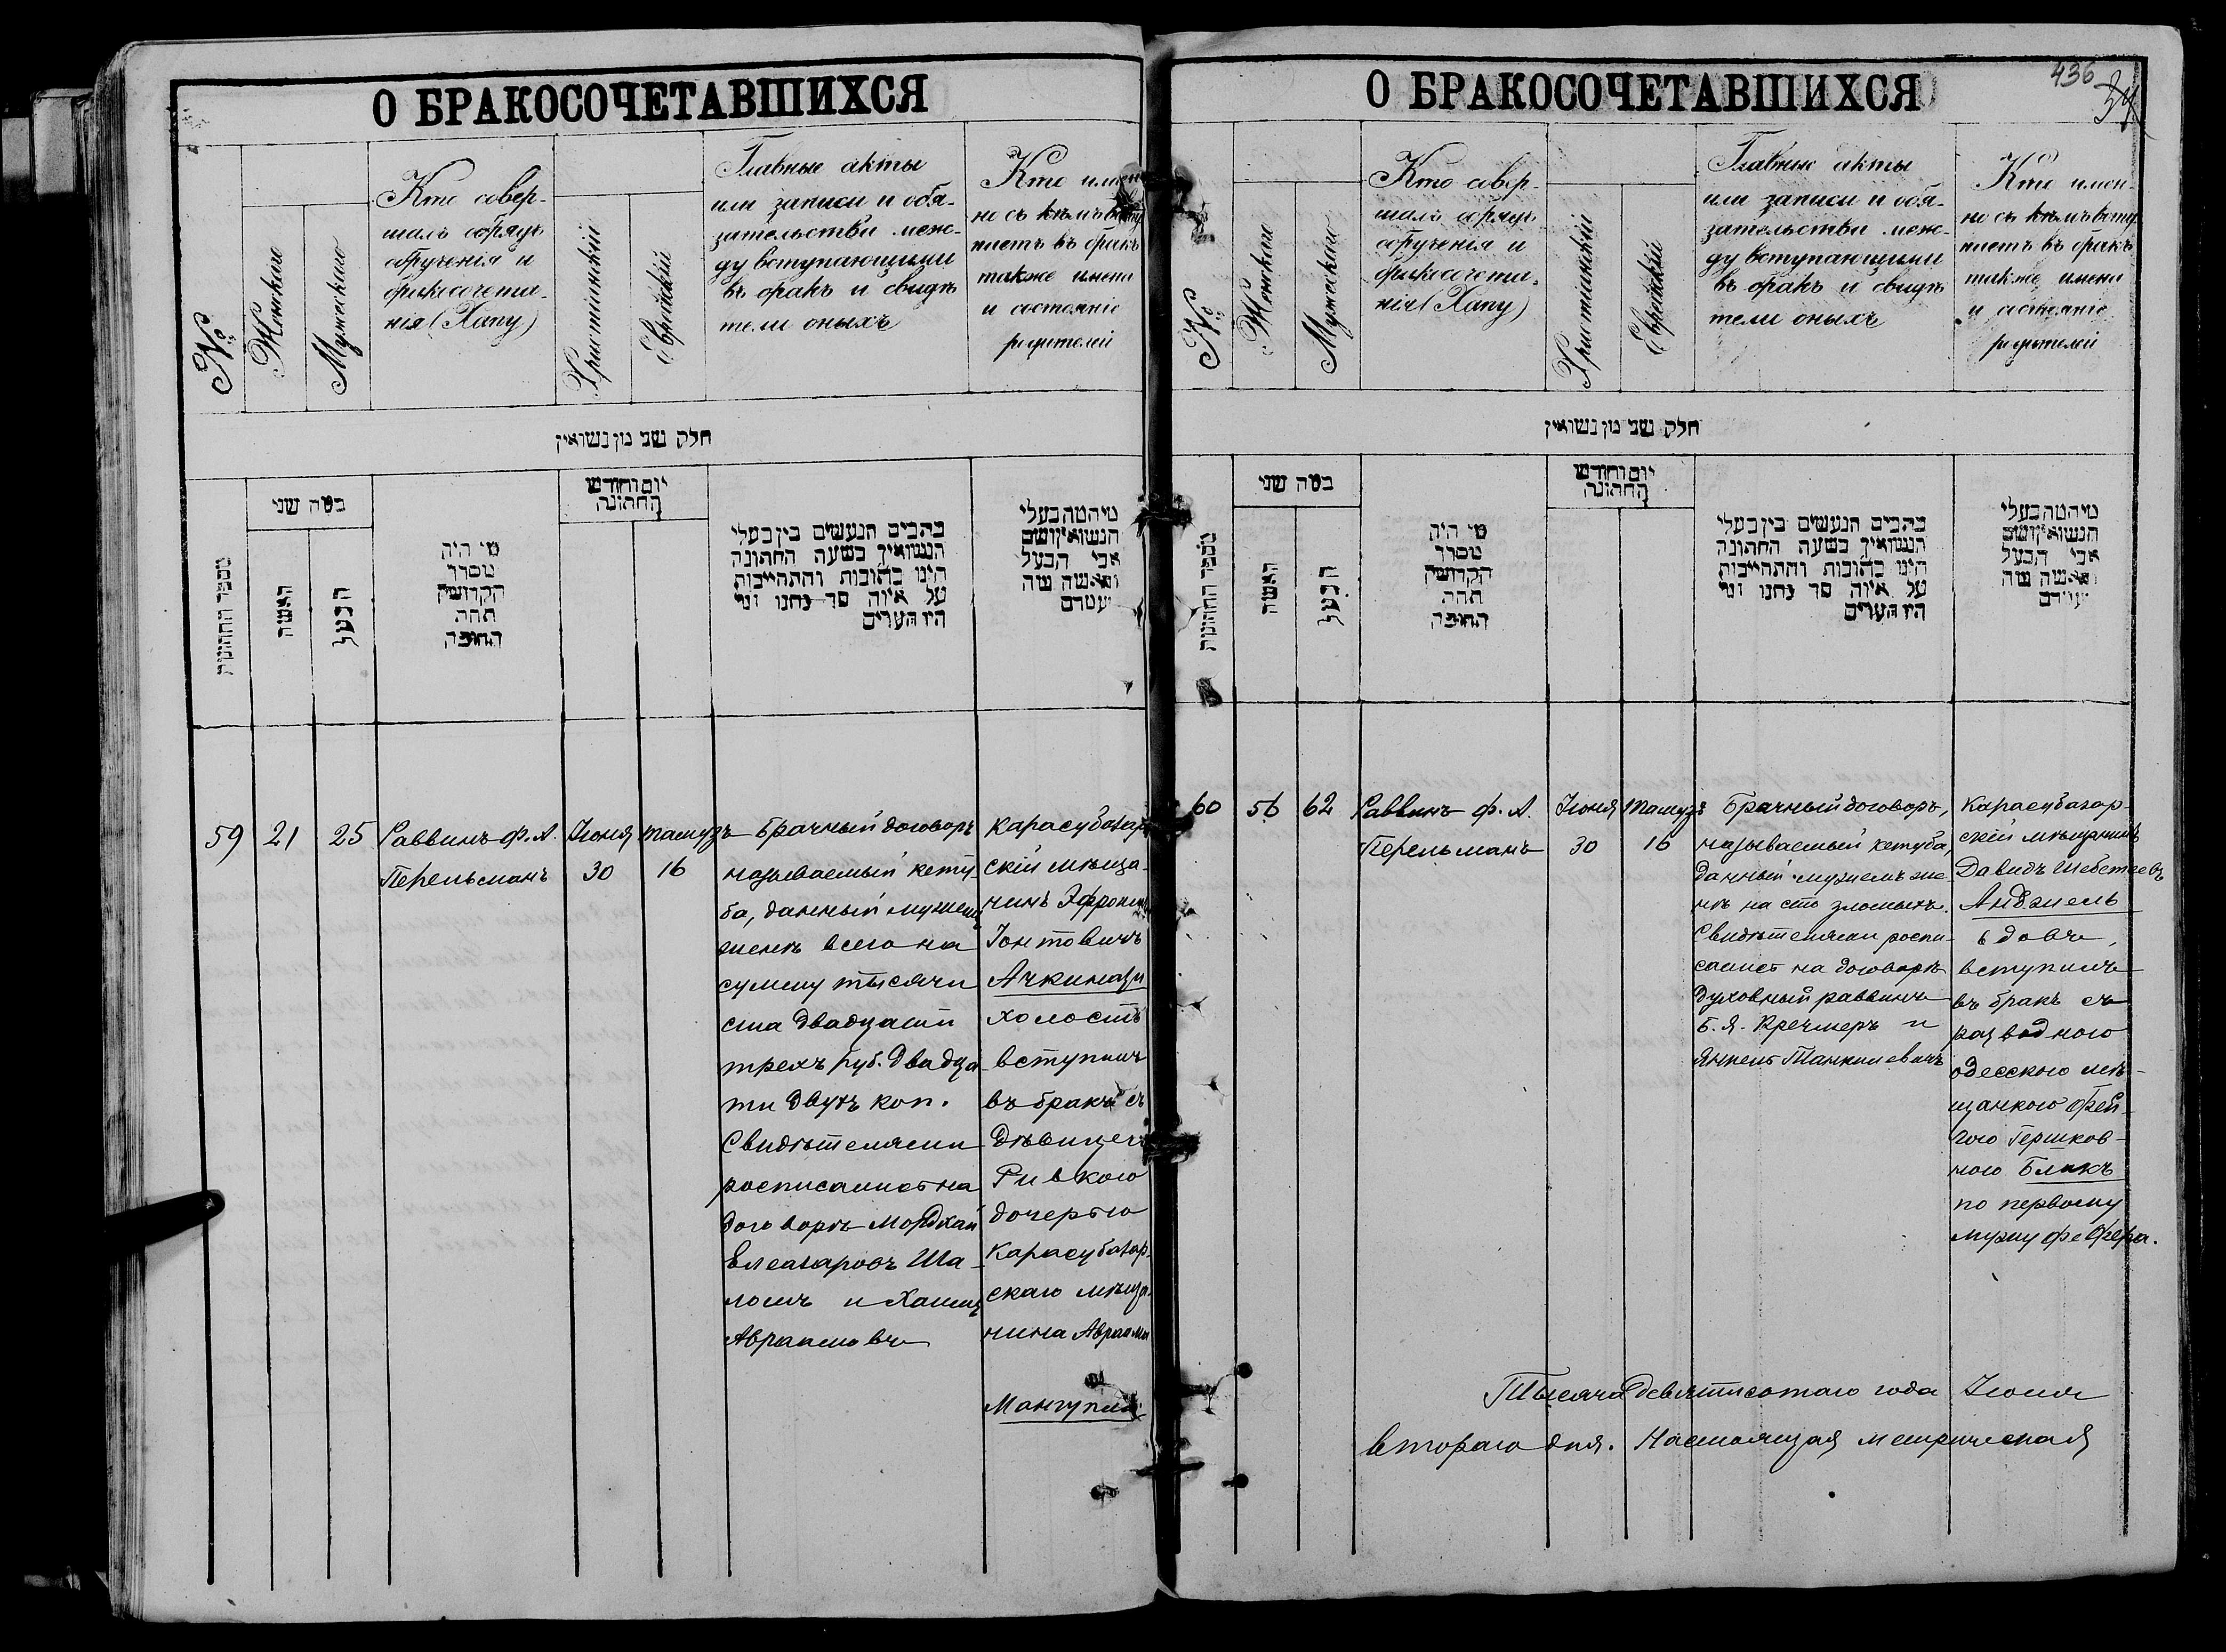 О БРАКОСОЧЕТАВШИХСЯ
№
Женскаго
Мужескаго
Кто совер-
шалъ обрядъ
обрученія и
бракосочета-
нія (Хапу)
Христіанскій
Еврейскій
Главные акты
или записи и обя-
зательства меж-
ду вступающими
въ бракъ и свидѣ
тели оныхъ
Кто имен
но съ кѣмъ всту
паетъ въ бракъ
также имена
и состояніе
родителей
חלק שני מן נשואין
מספר החתונות
כמה שני
האשה
הבעל
מי היה
מסדר
הקדושין
תחת
החופה
יום וחודש
החתונה
כתבים הנעשים בין בעלי
הנשואין בשעה החתונה
הינו כתובות והתחייבות
על איזה סך נתנו ומי
היו העדים
מי המה בעלי
הנשואין ושם
אבי הבעל
והאשה מה
שמם
59
21
25
Раввинъ Ф. А.
Перельманъ
Іюня
30
Тамузъ
16
Брачный договоръ
называемый кету-
ба, данный мужемъ
женѣ всего на
сумму тысячи
ста двадцати
трехъ руб. двадца
ти двухъ коп.
Свидѣтелями
росписались на
договорѣ Мордхай
Елеазаровъ Ша-
ломъ и Хаимъ
Авраамовъ
Карасубазар
скій мѣща-
нинъ Эфроим
Іонтовичъ
Ачкинази
холостъ
вступилъ
въ бракъ съ
дѣвицею
Ривкою
дочерью
Карасубазар-
скаго мѣща-
нина Авраама
Мангупли
О БРАКОСОЧЕТАВШИХСЯ
436
34
№
Женскаго
Мужескаго
Кто совер-
шалъ обрядъ
обрученія и
бракосочета-
нія (Хапу)
Христіанскій
Еврейскій
Главные акты
или записи и обя-
зательства меж-
ду вступающими
въ бракъ и свидѣ
тели оныхъ
Кто имен-
но съ кѣмъ всту
паетъ въ бракъ
также имена
и состояніе
родителей
חלק שני מן נשואין
מספר החתונות
כמה שני
האשה
הבעל
מי היה
מסדר
הקדושין
תחת
החופה
יום וחודש
החתונה
כתבים הנעשים בין בעלי
הנשואין בשעה החתונה
הינו כתובות והתחייבות
על איזה סך נתנו ומי
היו העדים
מי המה בעלי
הנשואין ושם
אבי הבעל
והאשה מה
שמם
60
56
62
Раввинъ Ф. А.
Перельманъ
Іюня
30
Тамузъ
16
Брачный договоръ,
называемый кетуба,
данный мужемъ же-
нѣ на сто злотыхъ.
Свидѣтелями роспи-
сались на договорѣ
духовный раввинъ
Б. Я. Кречмеръ и
Янкель Танкилевичъ
Карасубазар-
скій мѣщанинъ
Давидъ Шебетеевъ
Анджель
вдовъ,
вступилъ
въ бракъ съ
разводною
одесскою мѣ-
щанкою Фей-
гою Гершков-
ною Блакъ
по первому
мужу Фефера.
Тысяча девятисотаго года Іюля
втораго дня. Настоящая метрическая